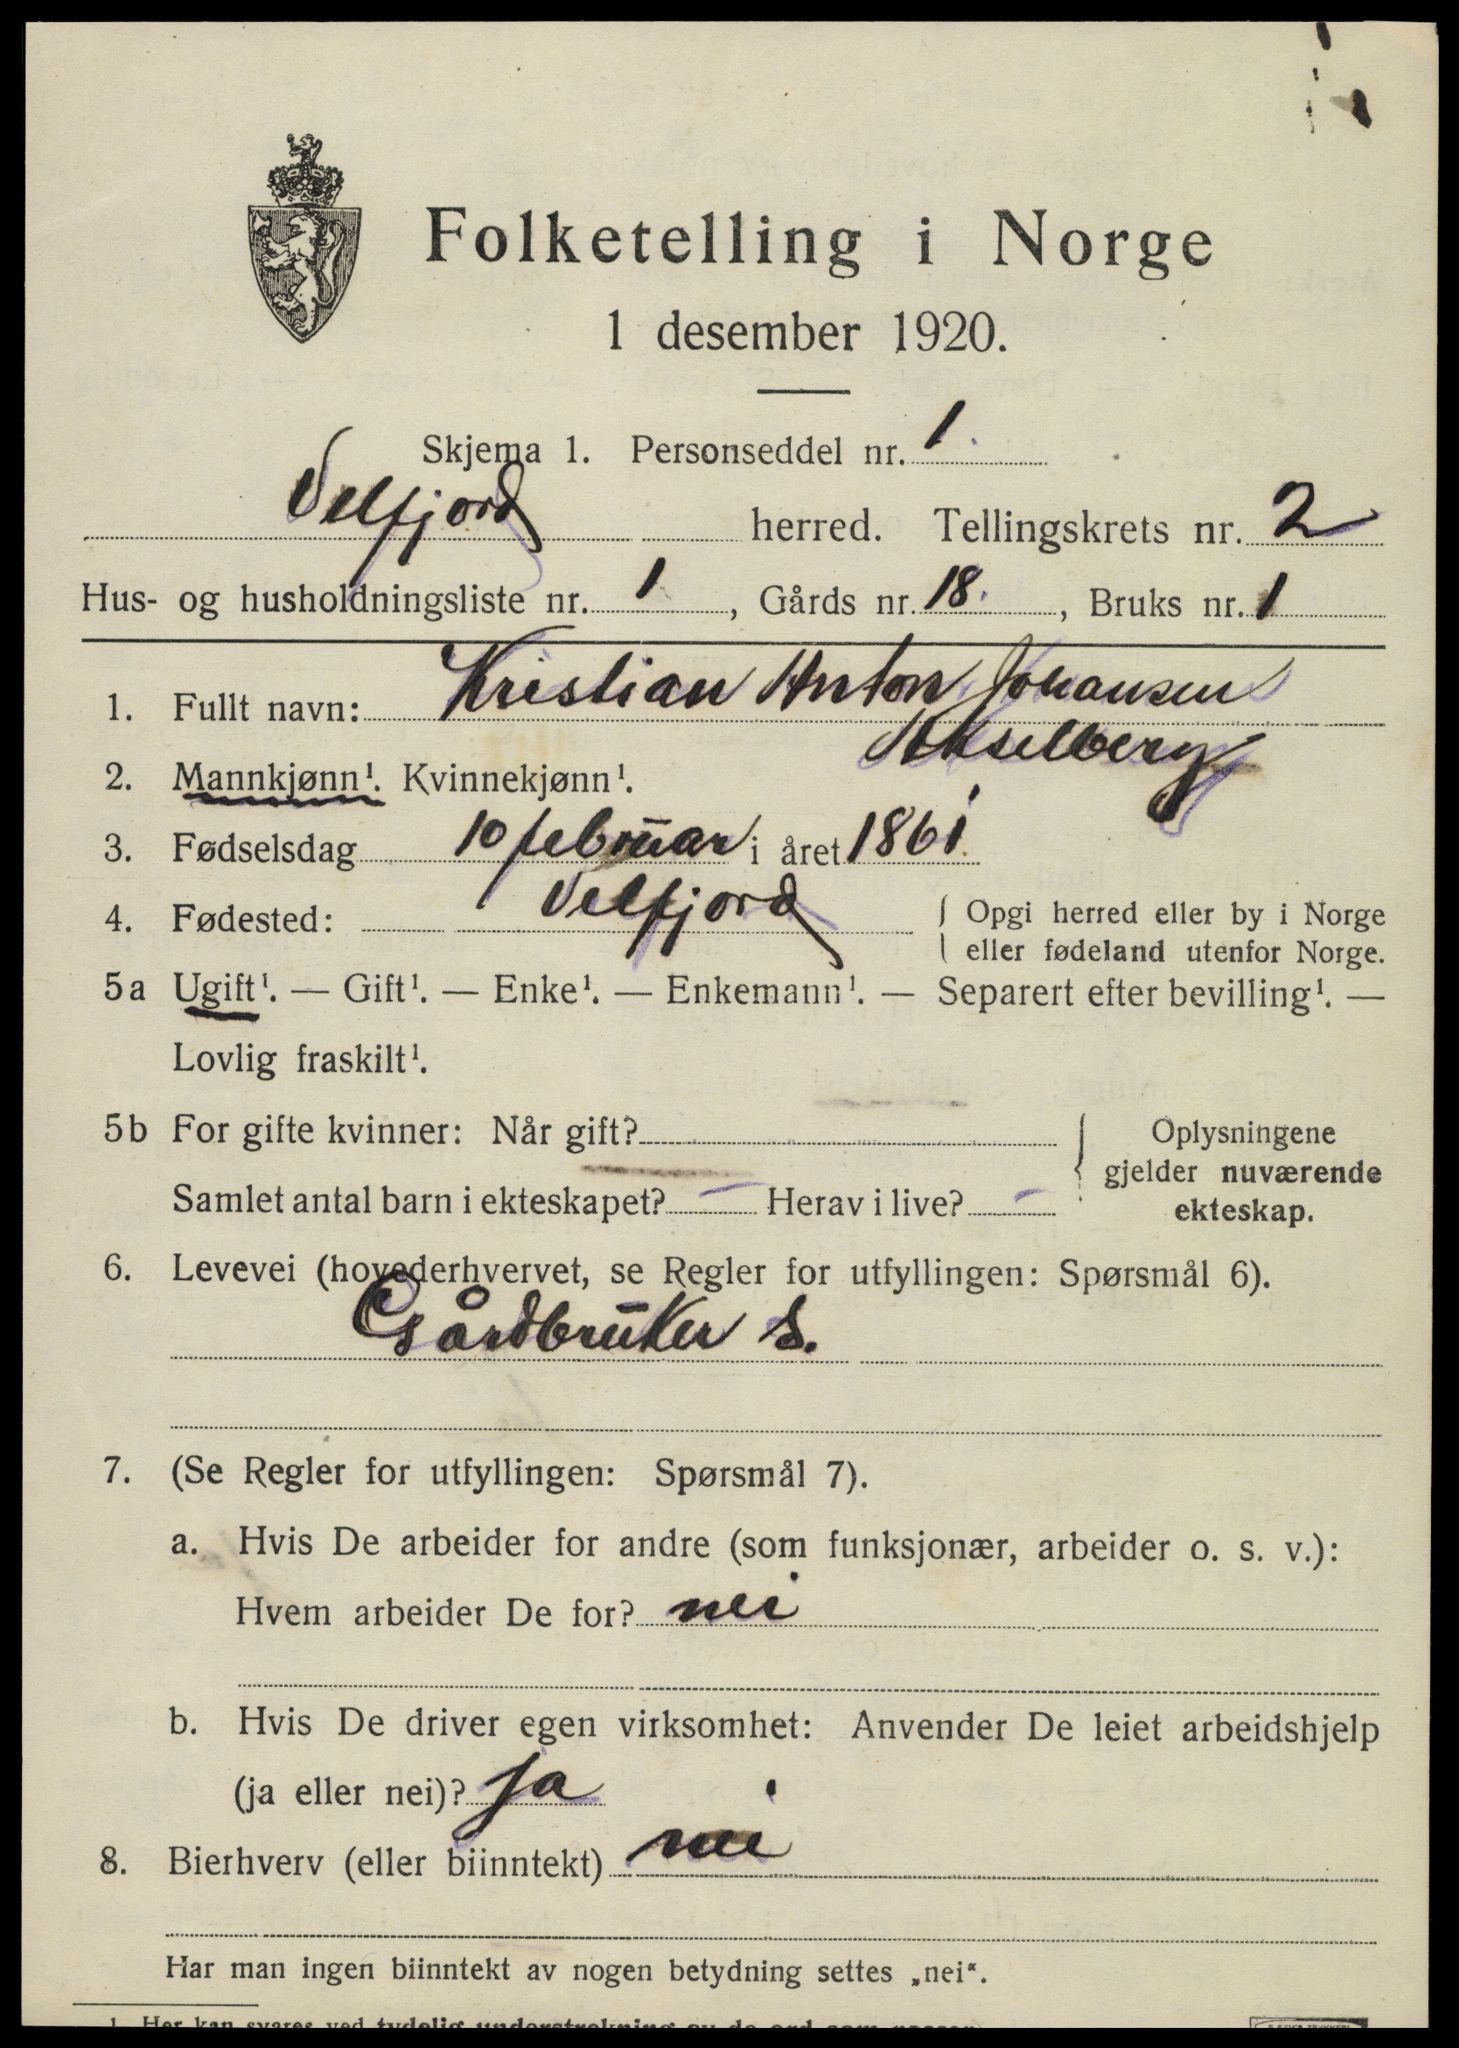 Folketelling i Norge
1 desember 1920.
Skjema 1. Personseddel nr. 1.
Velfjord herred. Tellingskrets nr. 2
Hus- og husholdningsliste nr. 1, Gårds nr. 18., Bruks nr. 1
1. Fullt navn: Kristian Anton Johansen
Akselberg
2. Mannkjønn¹. Kvinnekjønn¹.
3. Fødselsdag 10 februar i året 1861
4. Fødested: Velfjord { Opgi herred eller by i Norge
eller fødeland utenfor Norge.
5a Ugift¹. — Gift¹. — Enke¹. — Enkemann¹. — Separert efter bevilling¹. —
Lovlig fraskilt¹.
5b For gifte kvinner: Når gift? { Oplysningene
gjelder nuværende
Samlet antal barn i ekteskapet? — Herav i live? — ekteskap.
6. Levevei (hovederhvervet, se Regler for utfyllingen: Spørsmål 6).
Gårdbruker s.
7. (Se Regler for utfyllingen: Spørsmål 7).
a. Hvis De arbeider for andre (som funksjonær, arbeider o. s. v.):
Hvem arbeider De for? nei
b. Hvis De driver egen virksomhet: Anvender De leiet arbeidshjelp
(ja eller nei)? ja
8. Bierhverv (eller biinntekt) nei
Har man ingen biinntekt av nogen betydning settes „nei“.
1. Her kan svares ved tydelig understrekning av de ord som passer.